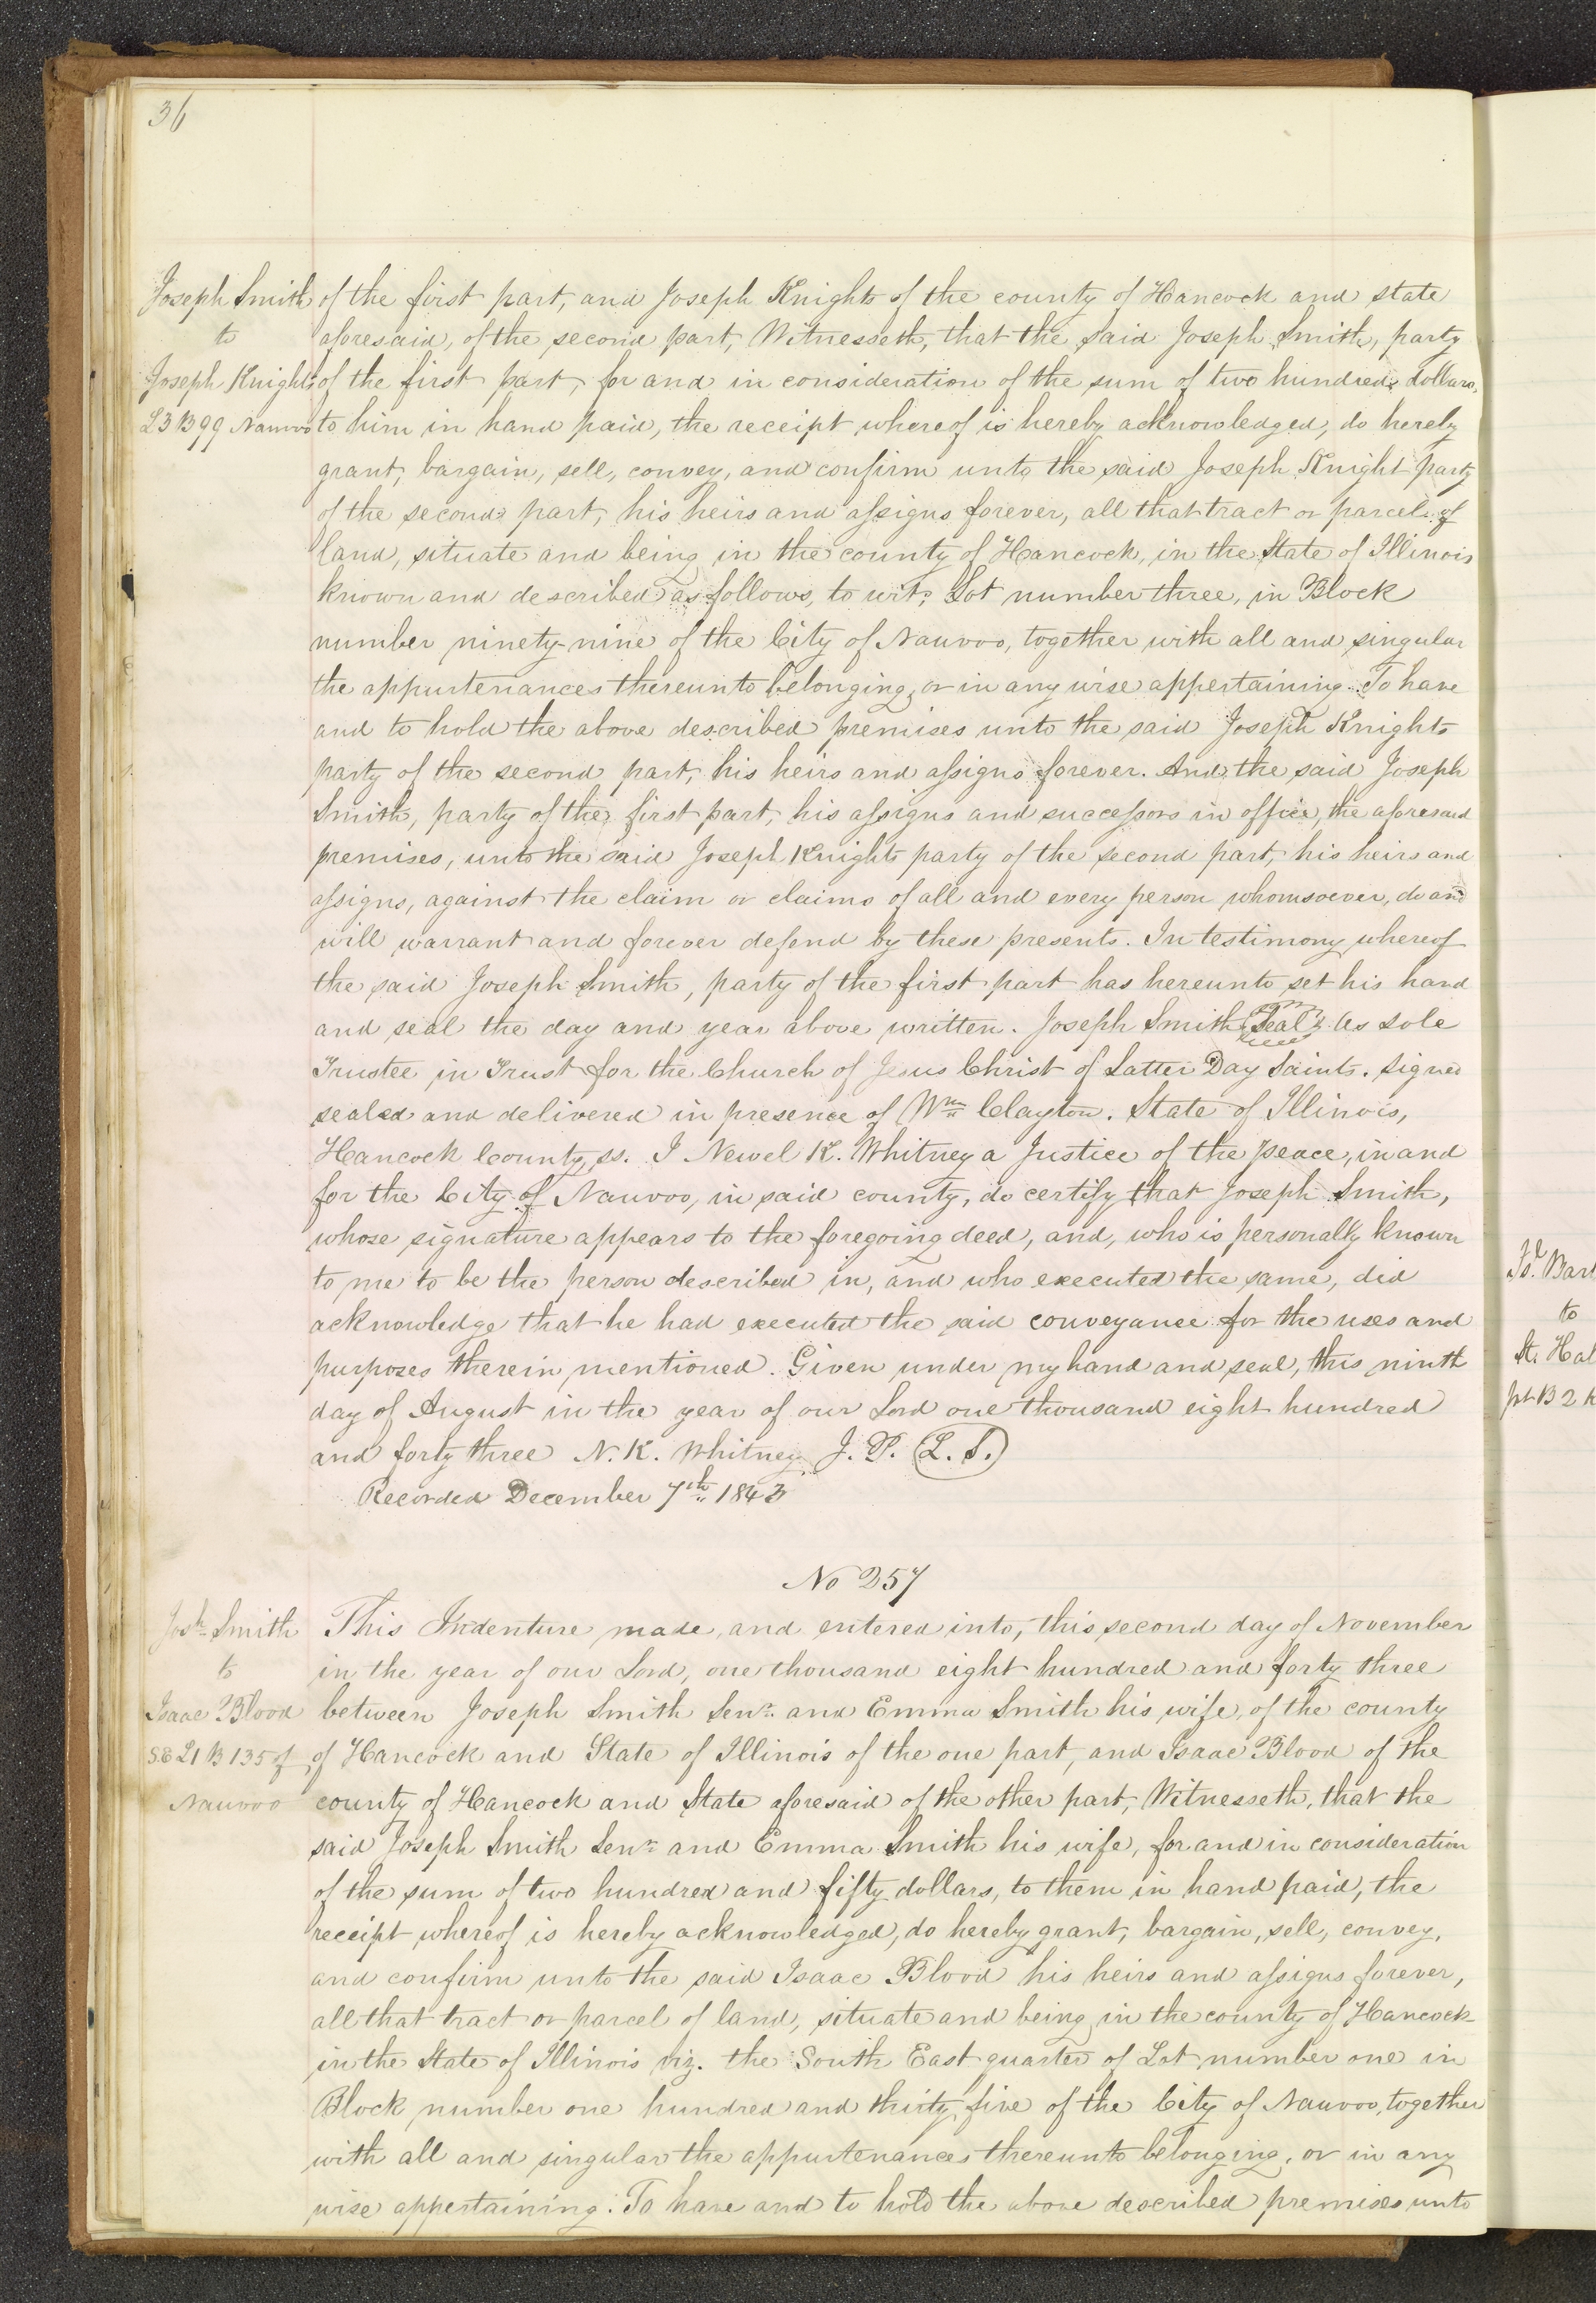 36
Joseph Smith
to
Joseph Knight
L3 B99 Nauvoo
of the first part, and Joseph Knight of the county of Hancock and state
aforesaid, of the second part, Witnesseth, that the said Joseph Smith, party
of the first part, for and in consideration of the sum of two hundred dollars,
to him in hand paid, the receipt whereof is hereby acknowledged, do hereby
grant, bargain, sell, convey, and confirm unto the said Joseph Knight party
of the second part, his heirs and assigns forever, all that tract or parcel of
land, situate and being in the county of Hancock, in the State of Illinois
known and described as follows, to wit; Lot number three, in Block
number ninety-nine of the City of Nauvoo, together with all and singular
the appurtenances thereunto belonging, or in any wise appertaining. To have
and to hold the above described premises unto the said Joseph Knight
party of the second part, his heirs and assigns forever. And the said Joseph
Smith, party of the first part, his assigns and successors in office, the aforesaid
premises, unto the said Joseph Knight party of the second part, his heirs and
assigns, against the claim or claims of all and every person whomsoever, do and
will warrant and forever defend by these presents. In testimony whereof
the said Joseph Smith, party of the first part has hereunto set his hand
and seal the day and year above written. Joseph Smith {Seal} As sole
Trustee in Trust for the Church of Jesus Christ of Latter Day Saints. Signed
sealed and delivered in presence of Wm Clayton. State of Illinois,
Hancock County, ss. I Newel K. Whitney a Justice of the peace, in and
for the City of Nauvoo, in said county, do certify that Joseph Smith,
whose signature appears to the foregoing deed, and, who is personally known
to me to be the person described in, and who executed the same, did
acknowledge that he had executed the said conveyance for the uses and
purposes therein mentioned. Given under my hand and seal, this ninth
day of August in the year of our Lord one thousand eight hundred
and forty three N. K. Whitney, J. P. (L. S.)
Recorded December 7th 1843
No 257
Josh Smith
to
Isaac Blood
SE L1 B 135 of
Nauvoo
This Indenture made, and entered into, this second day of November
in the year of our Lord, one thousand eight hundred and forty three
between Joseph Smith Senr. and Emma Smith his wife, of the county
of Hancock and State of Illinois of the one part, and Isaac Blood of the
county of Hancock and State aforesaid of the other part, Witnesseth, that the
said Joseph Smith Senr and Emma Smith his wife, for and in consideration
of the sum of two hundred and fifty dollars, to them in hand paid, the
receipt whereof is hereby acknowledged, do hereby grant, bargain, sell, convey,
and confirm unto the said Isaac Blood his heirs and assigns forever,
all that tract or parcel of land, situate and being in the county of Hancock
in the State of Illinois viz. the South East quarter of Lot number one in
Block number one hundred and thirty five of the City of Nauvoo, together
with all and singular the appurtenances thereunto belonging, or in any
wise appertaining. To have and to hold the above described premises unto
to